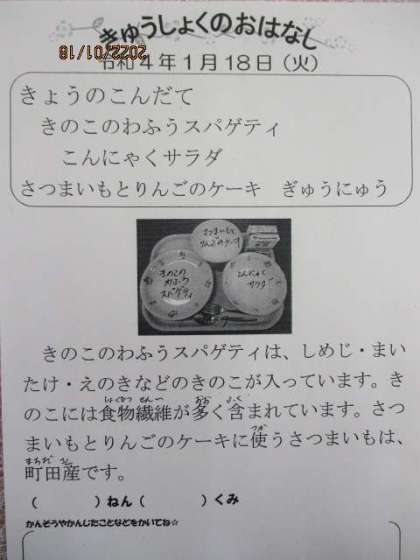 きゅうしょくのおはなし
2022/01/18
令和４年１月18日（火）
きょうのこんだて
きのこのわふうスパゲティ
こんにゃくサラダ
さつまいもとりんごのケーキ　ぎゅうにゅう
さつまいもと
りんごのケーキ
きのこの
わふう
スパゲティ
こんにゃく
サラダ
きのこのわふうスパゲティは、しめじ・まい
たけ・えのきなどのきのこが入っています。き
のこには食物繊維が多く含まれています。さつ
まいもとりんごのケーキに使うさつまいもは、
町田産です。
（　　　）ねん（　　　）くみ
かんそうやかんじたことなどをかいてね☆